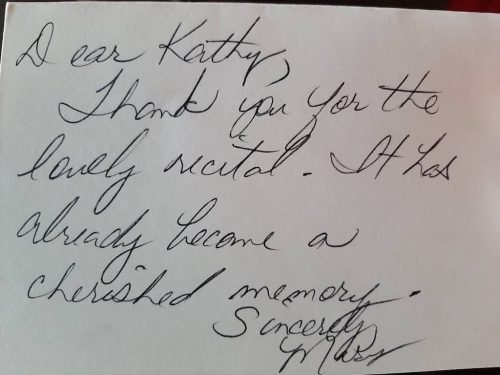 Dear Kathy,
Thank you for the
lovely recital. It has
already become a
cherished memory.
Sincerely